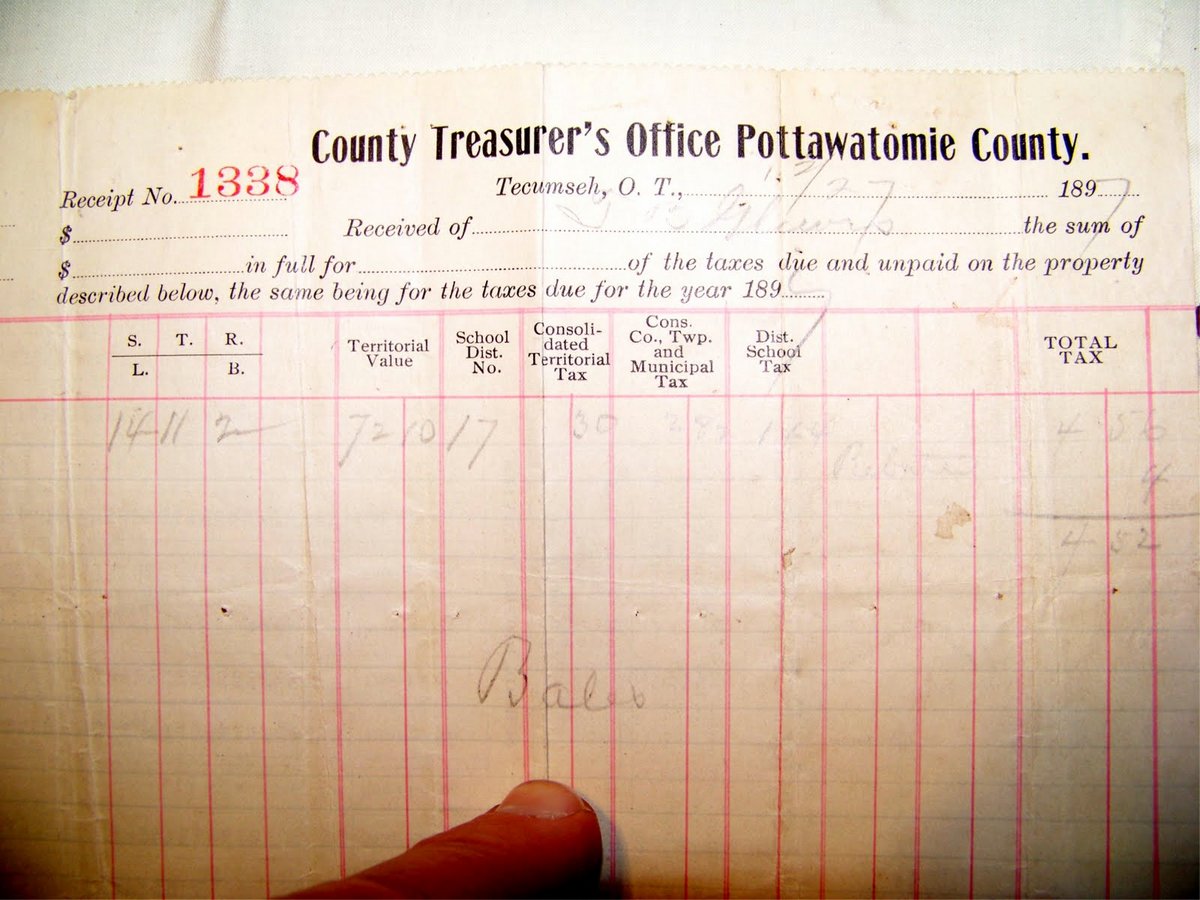 County Treasurer's Office Pottawatomie County.
Receipt No. 1338 Tecumseh, O. T., 12/27 1897
$ Received of the sum of
$ in full for of the taxes due and unpaid on the property
described below, the same being for the taxes due for the year 1897
S. T. R.
L. B.
Territorial Value
School Dist. No.
Consoli-dated Territorial Tax
Cons. Co., Twp. and Municipal Tax
Dist. School Tax
TOTAL TAX
14 11 2 72 10 17 30 4 56
Rebate 4
4 52